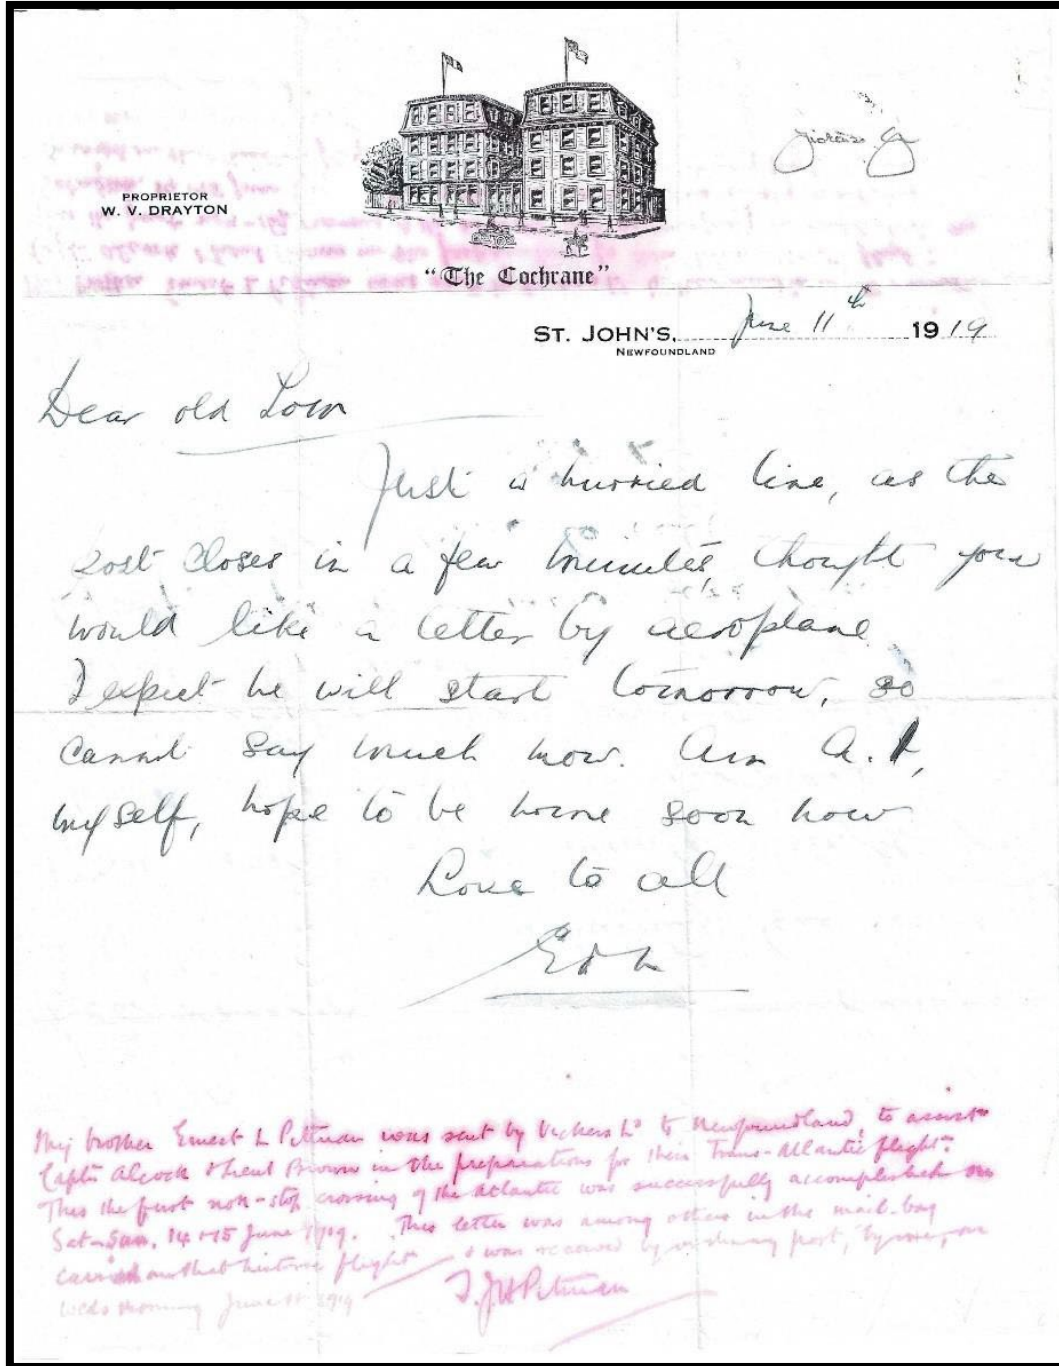 PROPRIETOR
W. V. DRAYTON
"The Cochrane"
ST. JOHN'S, June 11th 1919
NEWFOUNDLAND
Dear old Tom
Just a hurried line, as the
post closes in a few minutes thought you
would like a letter by aeroplane
I expect he will start tomorrow, so
cannot say much now. Am A.1,
myself, hope to be home soon now
Love to all
My brother Ernest L Pittman was sent by Vickers Ld to Newfoundland, to assist
Captn Alcock & Lieut Brown in the preparations for their Trans-Atlantic flight.
This the first non-stop crossing of the Atlantic was successfully accomplished on
Sat-Sun, 14 +15 June 1919. This letter was among others in the mail-bag
carried on that historic flight & was received by ordinary post, by me, on
Weds morning June 1919
T.J.H Pittman